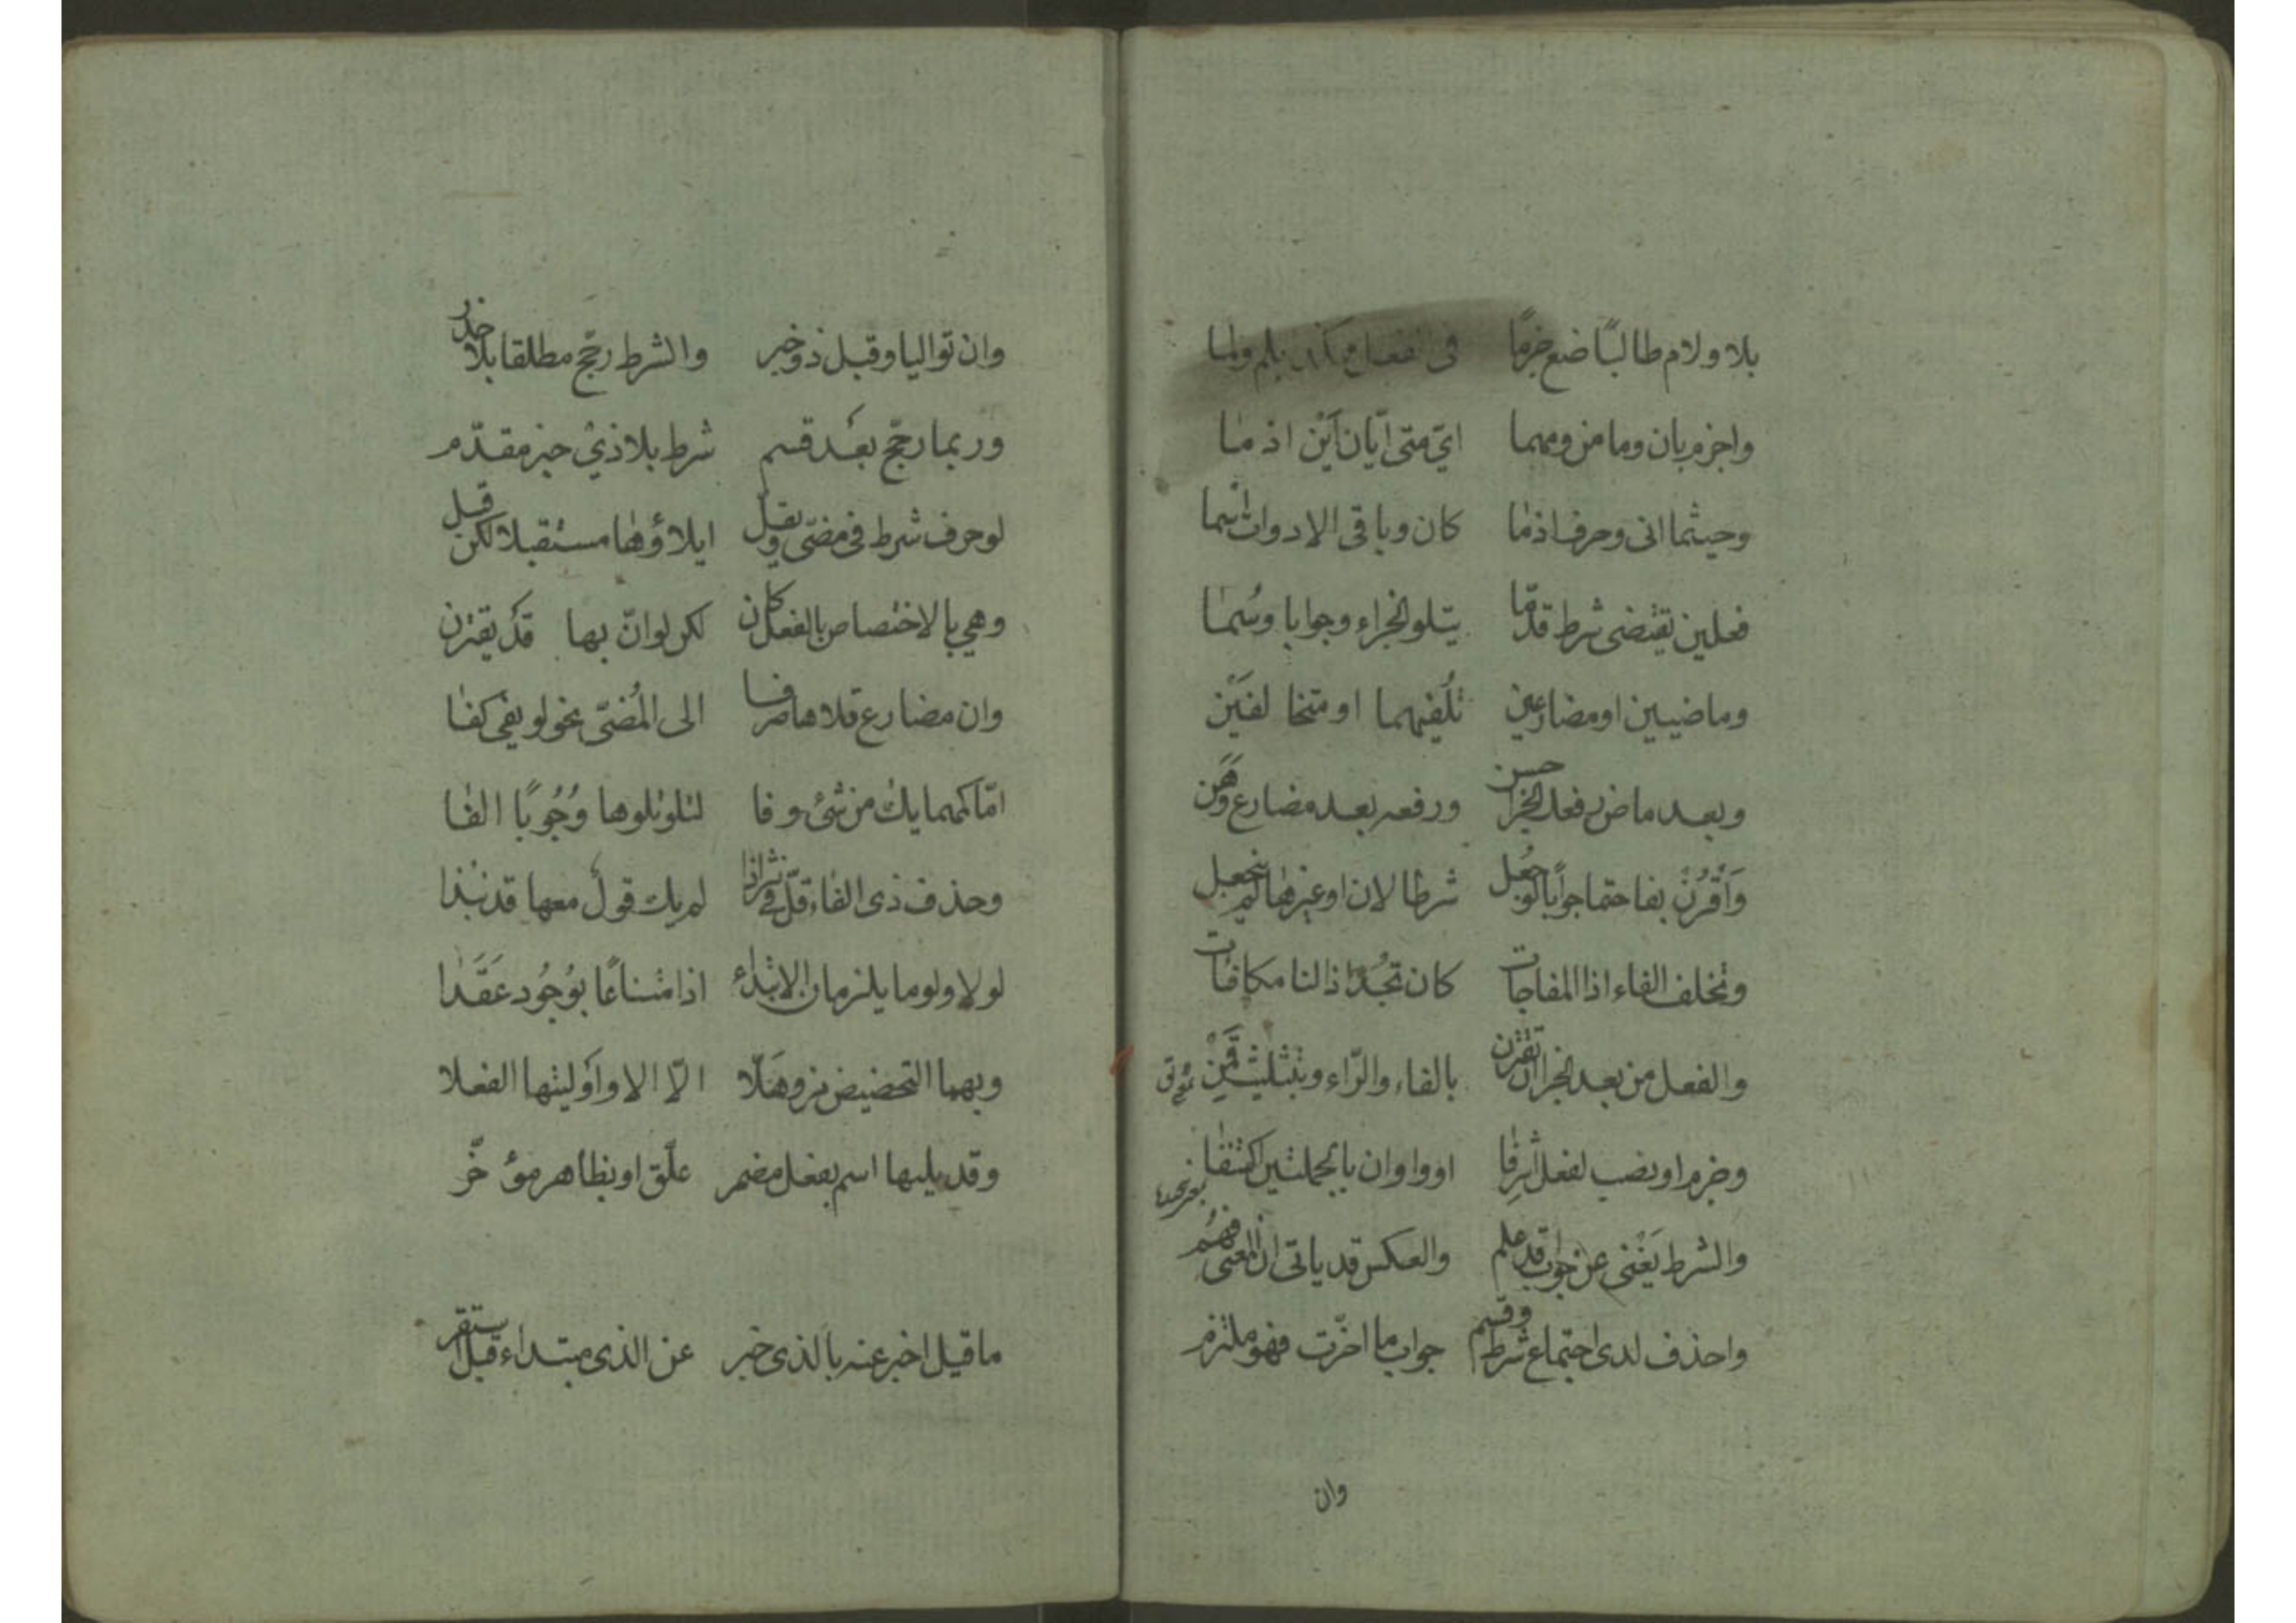 بلا ولام طالبًا ضع جزمًا في الفعل هكذا بلم ولما
واجزم بان وما من ومهما ايّ متى ايّان اَيْن اذ ما
وحيثما انى وحرف اذما كان وباقى الادوات اسما
فعلين يقتضى شرط قدّما يتلو الجزاء وجوابا وسُما
وماضيين او مضارعين تُلفيهما او متخا لفَيْن
وبعد ماض رفعك الجزا حسن ورفعه بعد مضارع وَهَن
وَاَقْرُنْ بفا حتما جوابًا لو جُعِل شرطا لان او غيرها لم ينجعل
وتخلف الفاء اذا المفاجات كان تَجُدْ اذا لنا مكافات
والفعل من بعد الجزا ان تقترن بالفاء والرّاء وبتثليث قَمِنْ
وجزم او نصب لفعل اثرفا او واوان بالجملتين اكتنفا
والشرط يَغْنى عن جواب قد علم والعكس قد ياتى ان المعنى فهُم
واحذف لدى اجتماع شرط وقسم جواب ما اخّرت فهو ملتزم
وان
وان تواليا وقبل ذو خبر والشرط رجّح مطلقا بلا حذر
وربما رجّح بعد قسم شرط بلا ذي خبر مقدّم
لو حرف شرط فى مضىّ ويقلّ ايلاؤها مستقبلا لكن قبل
وهي بالاختصاص بالفعل كان لكن لو انّ بها قد يقترن
وان مضارع تلاها صرفا الى المُضىّ نحو لو يفى كفا
امّا كمهما يك من شئ وفا لتلو تلوها وُجُوبًا الفا
وحذف ذى الفاء قلّ في نثر اذا لم يك قول معها قد نبذا
لولا ولوما يلزمان الابتداء اذا متناعًا بوُجُود عَقَدا
وبهما التحضيض مز وهَلّا الّا الا واَوليتها الفعلا
وقد يليها اسم بفعل مضمر علّق او بظاهر مؤخّر
ما قيل اخبر عنه بالذى خبر عن الذى مبتداء قبل استقر